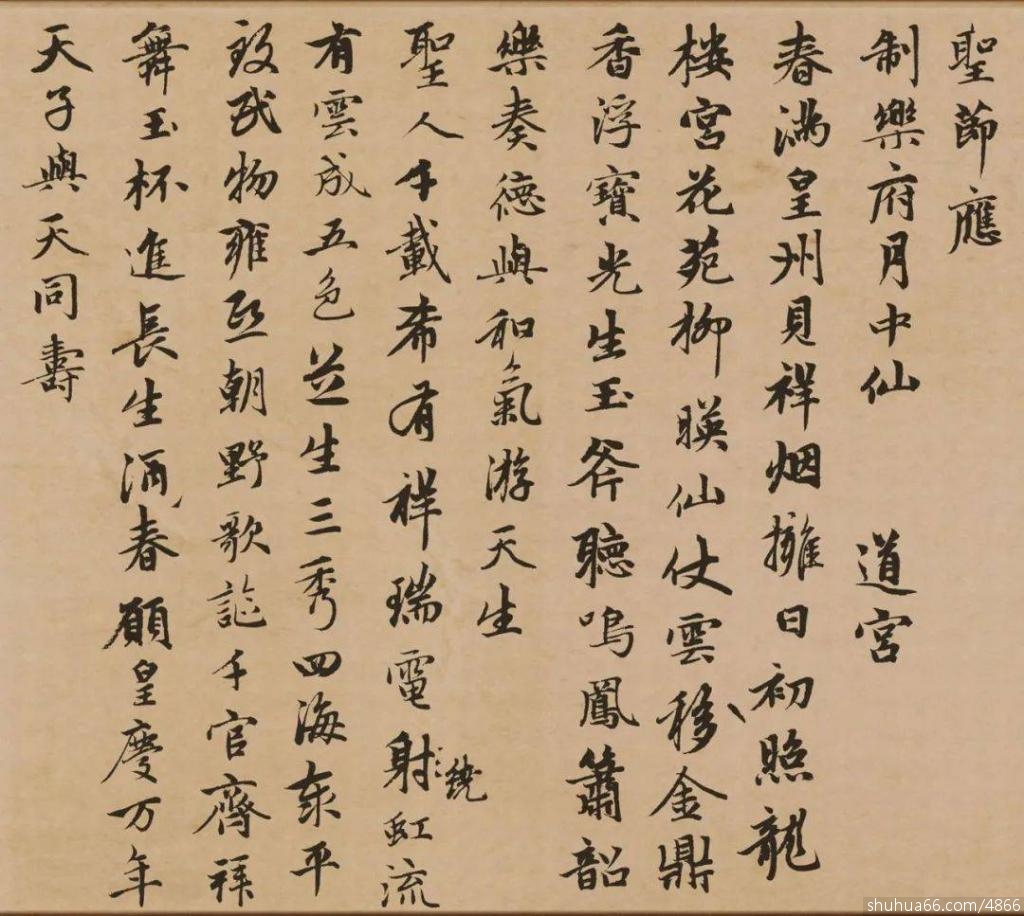 聖節應
制樂府月中仙 道宮
春滿皇州見祥烟擁日初照龍
樓宮花苑柳暎仙仗雲移金鼎
香浮寶光生玉斧聽鳴鳳簫韶
樂奏德與和氣游天生
聖人千載希有祥瑞電射虹流
繞
有雲成五色芝生三秀四海太平
致民物雍熙朝野歌謠千官齊拜
舞玉杯進長生酒春願皇慶万年
天子與天同壽
shuhua66.com/4866